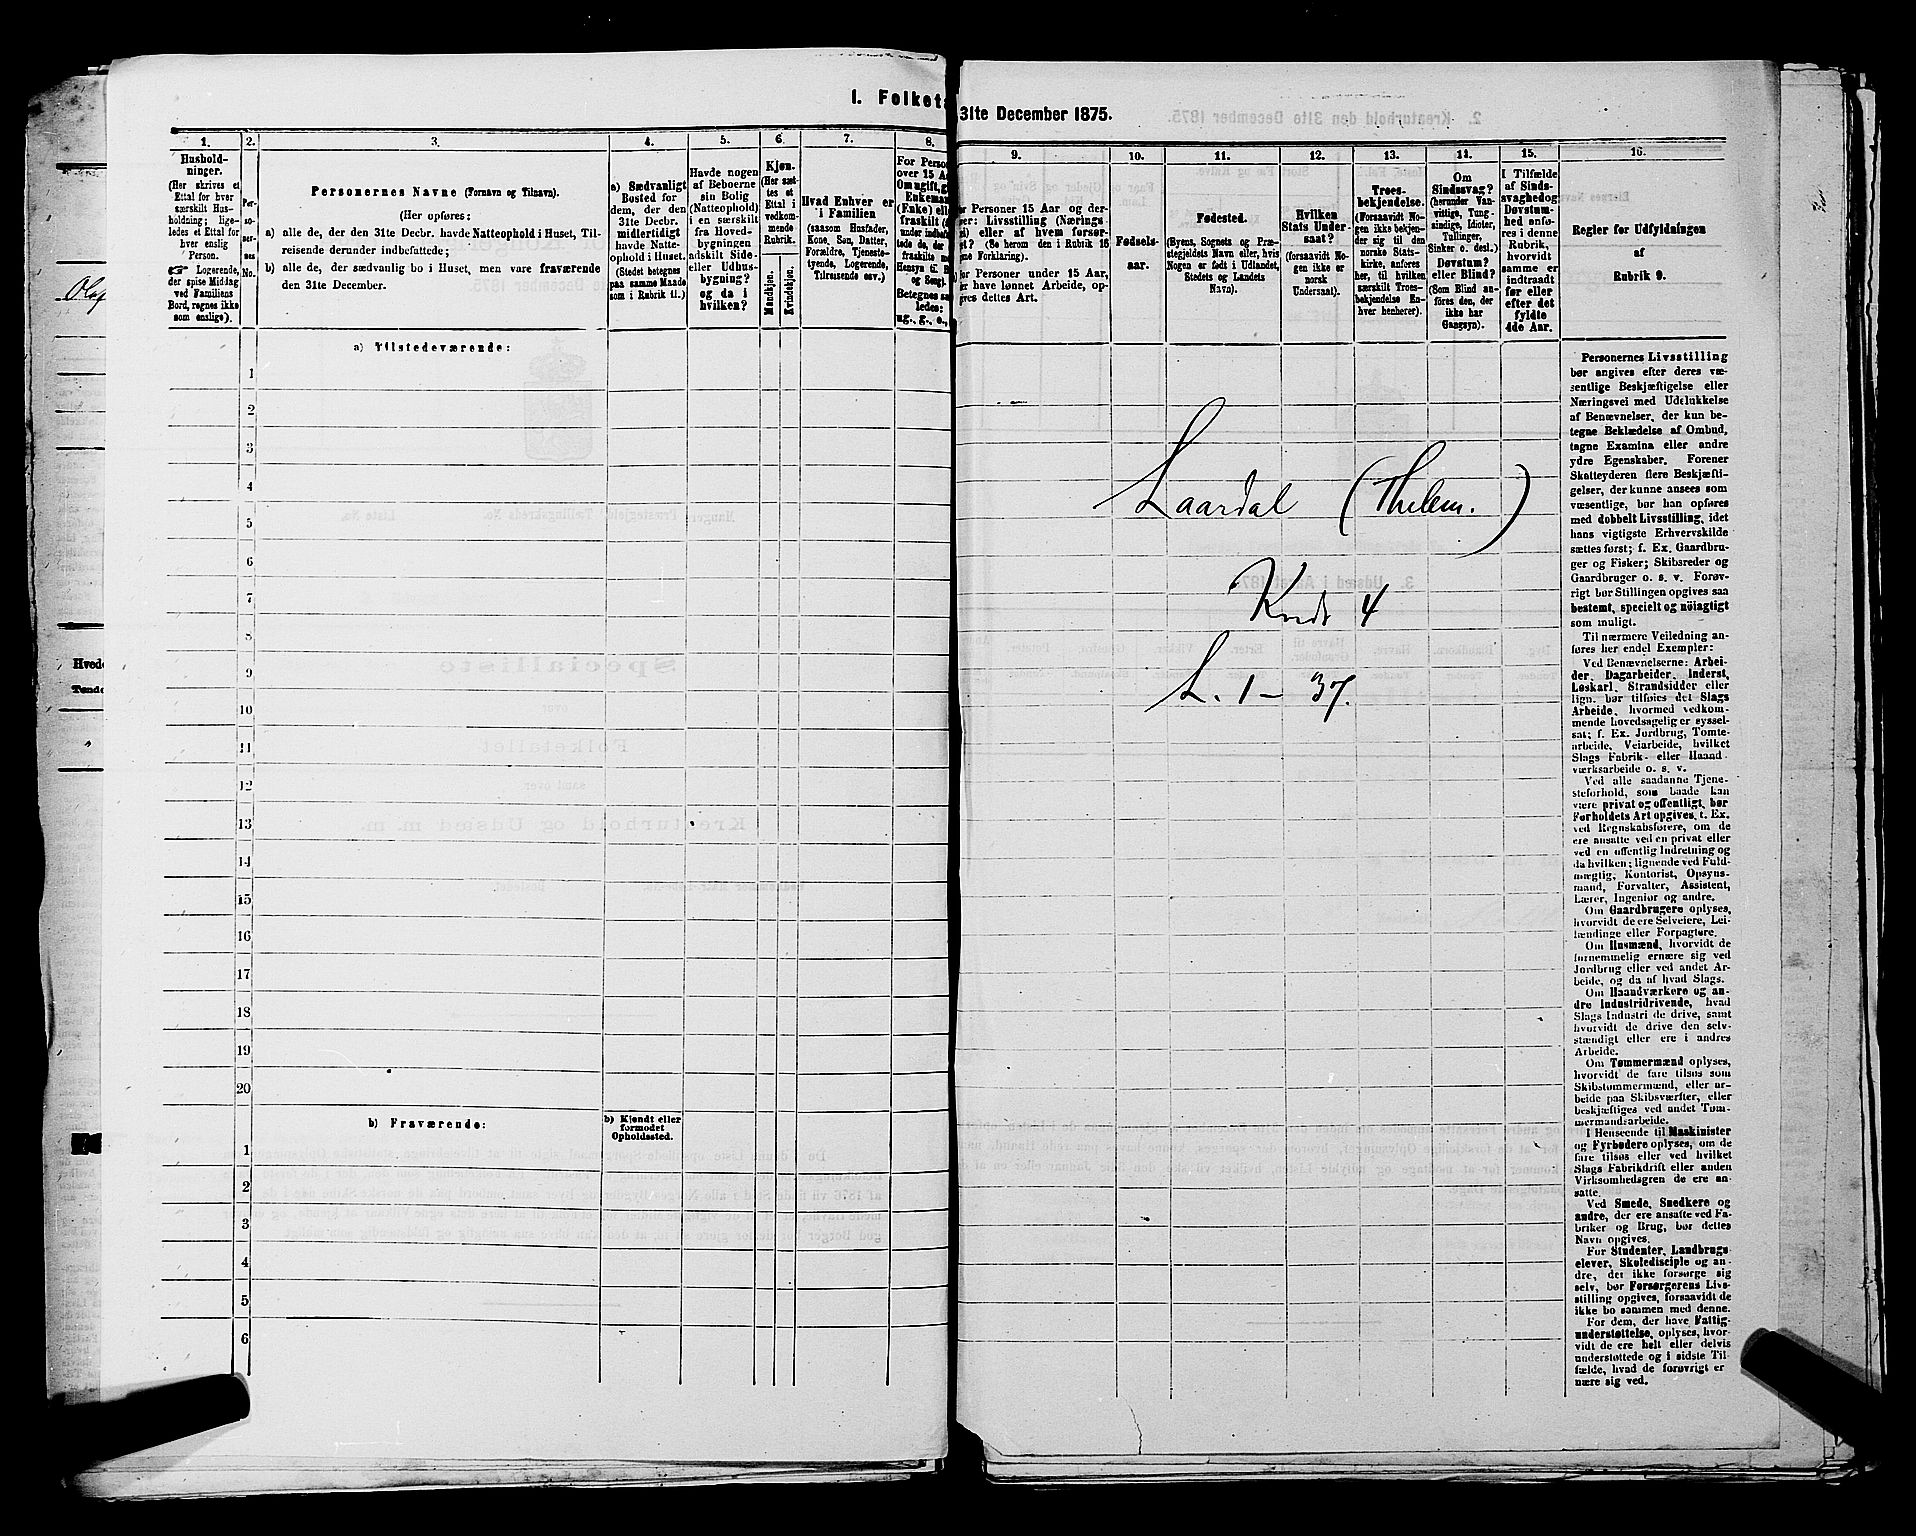 I. Folketæ
31te December 1875.
1.
Hushold-
ninger.
(Her skrives et
Ettal for hver
særskilt Hus-
holdning; lige-
ledes et Ettal for
hver enslig
Person.
☞ Logerende,
der spise Middag
ved Familiens
Bord, regnes ikke
som enslige).
2.
Per-
so-
ner-
nes
No.
3.
Personernes Navne (Fornavn og Tilnavn).
(Her opføres:
a) alle de, der den 31te Decbr. havde Natteophold i Huset, Til-
reisende derunder indbefattede;
b) alle de, der sædvanlig bo i Huset, men vare fraværende
den 31te December.
4.
a) Sædvanligt
Bosted for
dem, der den
31te Decbr.
midlertidigt
havde Natte-
ophold i Huset.
(Stedet betegnes
paa samme Maade
som i Rubrik 11.)
5.
Havde nogen
af Beboerne
sin Bolig
(Natteophold)
i en særskilt
fra Hoved-
bygningen
adskilt Side-
eller Udhus-
bygning?
og da i
hvilken?
6.
Kjøn.
(Her sæt-
tes et
Ettal i
vedkom-
mende
Rubrik.
Mandkjøn.
Kvindekjøn.
7.
Hvad Enhver er
i Familien
(saasom Husfader,
Kone, Søn, Datter,
Forældre, Tjeneste-
tyende, Logerende,
Tilreisende osv.)
8.
For Perso
over 15 A
Om ugift, g
Enkeman
(Enke) ell
fraskilt (
under indbef
tede de, de
fraskilte m
Hensyn til B
og Seng).
Betegnes sa
ledes:
ug., g., e.,
9.
or Personer 15 Aar og der-
er: Livsstilling (Nærings
i) eller af hvem forsør-
get? (Se herom den i Rubrik 16
ne Forklaring).
or Personer under 15 Aar,
har lønnet Arbeide, op-
gives dettes Art.
10.
Fødsels-
aar.
11.
Fødested.
(Byens, Sognets og Præ-
stegjeldets Navn eller, hvis
Nogen er født i Udlandet,
Stedets og Landets
Navn).
12.
Hvilken
Stats Under-
saat?
(forsaavidt No-
gen ikke er
norsk
Undersaat).
13.
Troes-
bekjendelse.
(Forsaavidt No-
gen ikke bekjen-
der sig til den
norske Stats-
kirke, anføres
her, til hvilken
særskilt Troes-
bekjendelse En-
hver henhører).
14.
Om
Sindssvag?
(herunder Van-
vittige, Tung-
sindige, Idioter,
Tullinger,
Sinker o. desl.)
Døvstum?
eller Blind?
(Som Blind an-
føres den, der
ikke har
Gangsyn).
15.
I Tilfælde
af Sinds-
svaghed og
Døvstum-
hed anfø-
res i denne
Rubrik,
hvorvidt
samme er
indtraadt
før eller
efter det
fyldte
4de Aar.
16.
Regler for Udfyldningen
af
Rubrik 9.
a) Tilstedeværende:
1
2
3
4
5
6
7
8
9
10
11
12
13
14
15
16
17
18
19
20
b) Fraværende:
b) Kjendt eller
formodet
Opholdssted.
1
2
3
4
5
6
Laardal (Thelem.)
Kreds 4
L. 1 - 37.
Personernes Livsstilling
bør angives efter deres væ-
sentlige Beskjæftigelse eller
Næringsvei med Udelukkelse
af Benævnelser, der kun be-
tegne Beklædelse af Ombud,
tagne Examina eller andre
ydre Egenskaber. Forener
Skatteyderen flere Beskjæfti-
gelser, der kunne ansees som
væsentlige, bør han opføres
med dobbelt Livsstilling, idet
hans vigtigste Erhvervskilde
sættes først; f. Ex. Gaardbru-
ger og Fisker; Skibsreder og
Gaardbruger o. s. v. Forøv-
rigt bør Stillingen opgives saa
bestemt, specielt og nøiagtigt
som muligt.
Til nærmere Veiledning an-
føres her endel Exempler:
Ved Benævnelserne: Arbei-
der, Dagarbeider, Inderst,
Løskarl, Strandsidder eller
lign. bør tilføies det Slags
Arbeide, hvormed vedkom-
mende hovedsagelig er syssel-
sat; f. Ex. Jordbrug, Tomte-
arbeide, Veiarbeide, hvilket
Slags Fabrik- eller Haand
værksarbeide o. s. v.
Ved alle saadanne Tjene-
steforhold, som baade kan
være privat og offentligt, bør
Forholdets Art opgives, t. Ex.
ved Regnskabsførere, om de
ere ansatte ved en privat eller
ved en offentlig Indretning og
da hvilken; lignende ved Fuld-
mægtig, Kontorist, Opsyns-
mand, Forvalter, Assistent,
Lærer, Ingeniør og andre.
Om Gaardbrugere oplyses,
hvorvidt de ere Selveiere, Lei-
lændinge eller Forpagtere.
Om Husmænd, hvorvidt de
fornemmelig ernære sig ved
Jordbrug eller ved andet Ar-
beide, og da af hvad Slags.
Om Haandværkere og an-
dre Industridrivende, hvad
Slags Industri de drive, samt
hvorvidt de drive den selv-
stændigt eller ere i andres
Arbeide.
Om Tømmermænd oplyses,
hvorvidt de fare tilsøs som
Skibstømmermænd, eller ar-
beide paa Skibsværfter, eller
beskjæftiges ved andet Tøm-
mermandsarbeide.
I Henseende til Maskinister
og Fyrbødere oplyses, om de
fare tilsøs eller ved hvilket
Slags Fabrikdrift eller anden
Virksomhedsgren de ere an-
satte.
Ved Smede, Snedkere og
andre, der ere ansatte ved Fa-
briker og Brug, bør dettes
Navn opgives.
For Studenter, Landbrugs
elever, Skoledisciple og an-
dre, der ikke forsørge sig
selv, bør Forsørgerens Livs-
stilling opgives, forsaavidt de
ikke bo sammen med denne.
For dem, der have Fattig-
understøttelse, oplyses, hvor-
vidt de ere helt eller delvis
understøttede og i sidste Til-
fælde, hvad de forøvrigt er
nære sig ved.